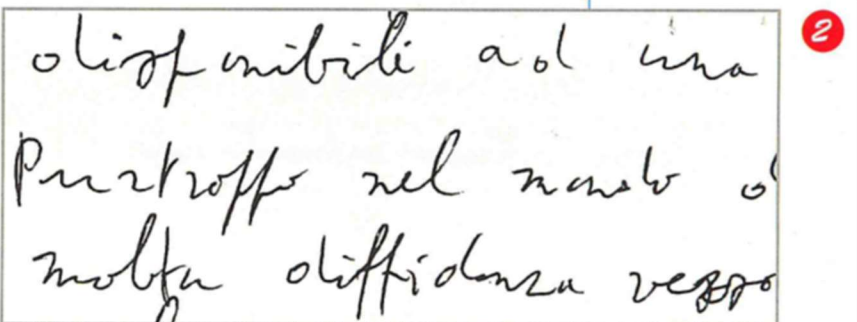 disponibili ad una
2
Purtroppo nel mondo d
molta diffidenza verso